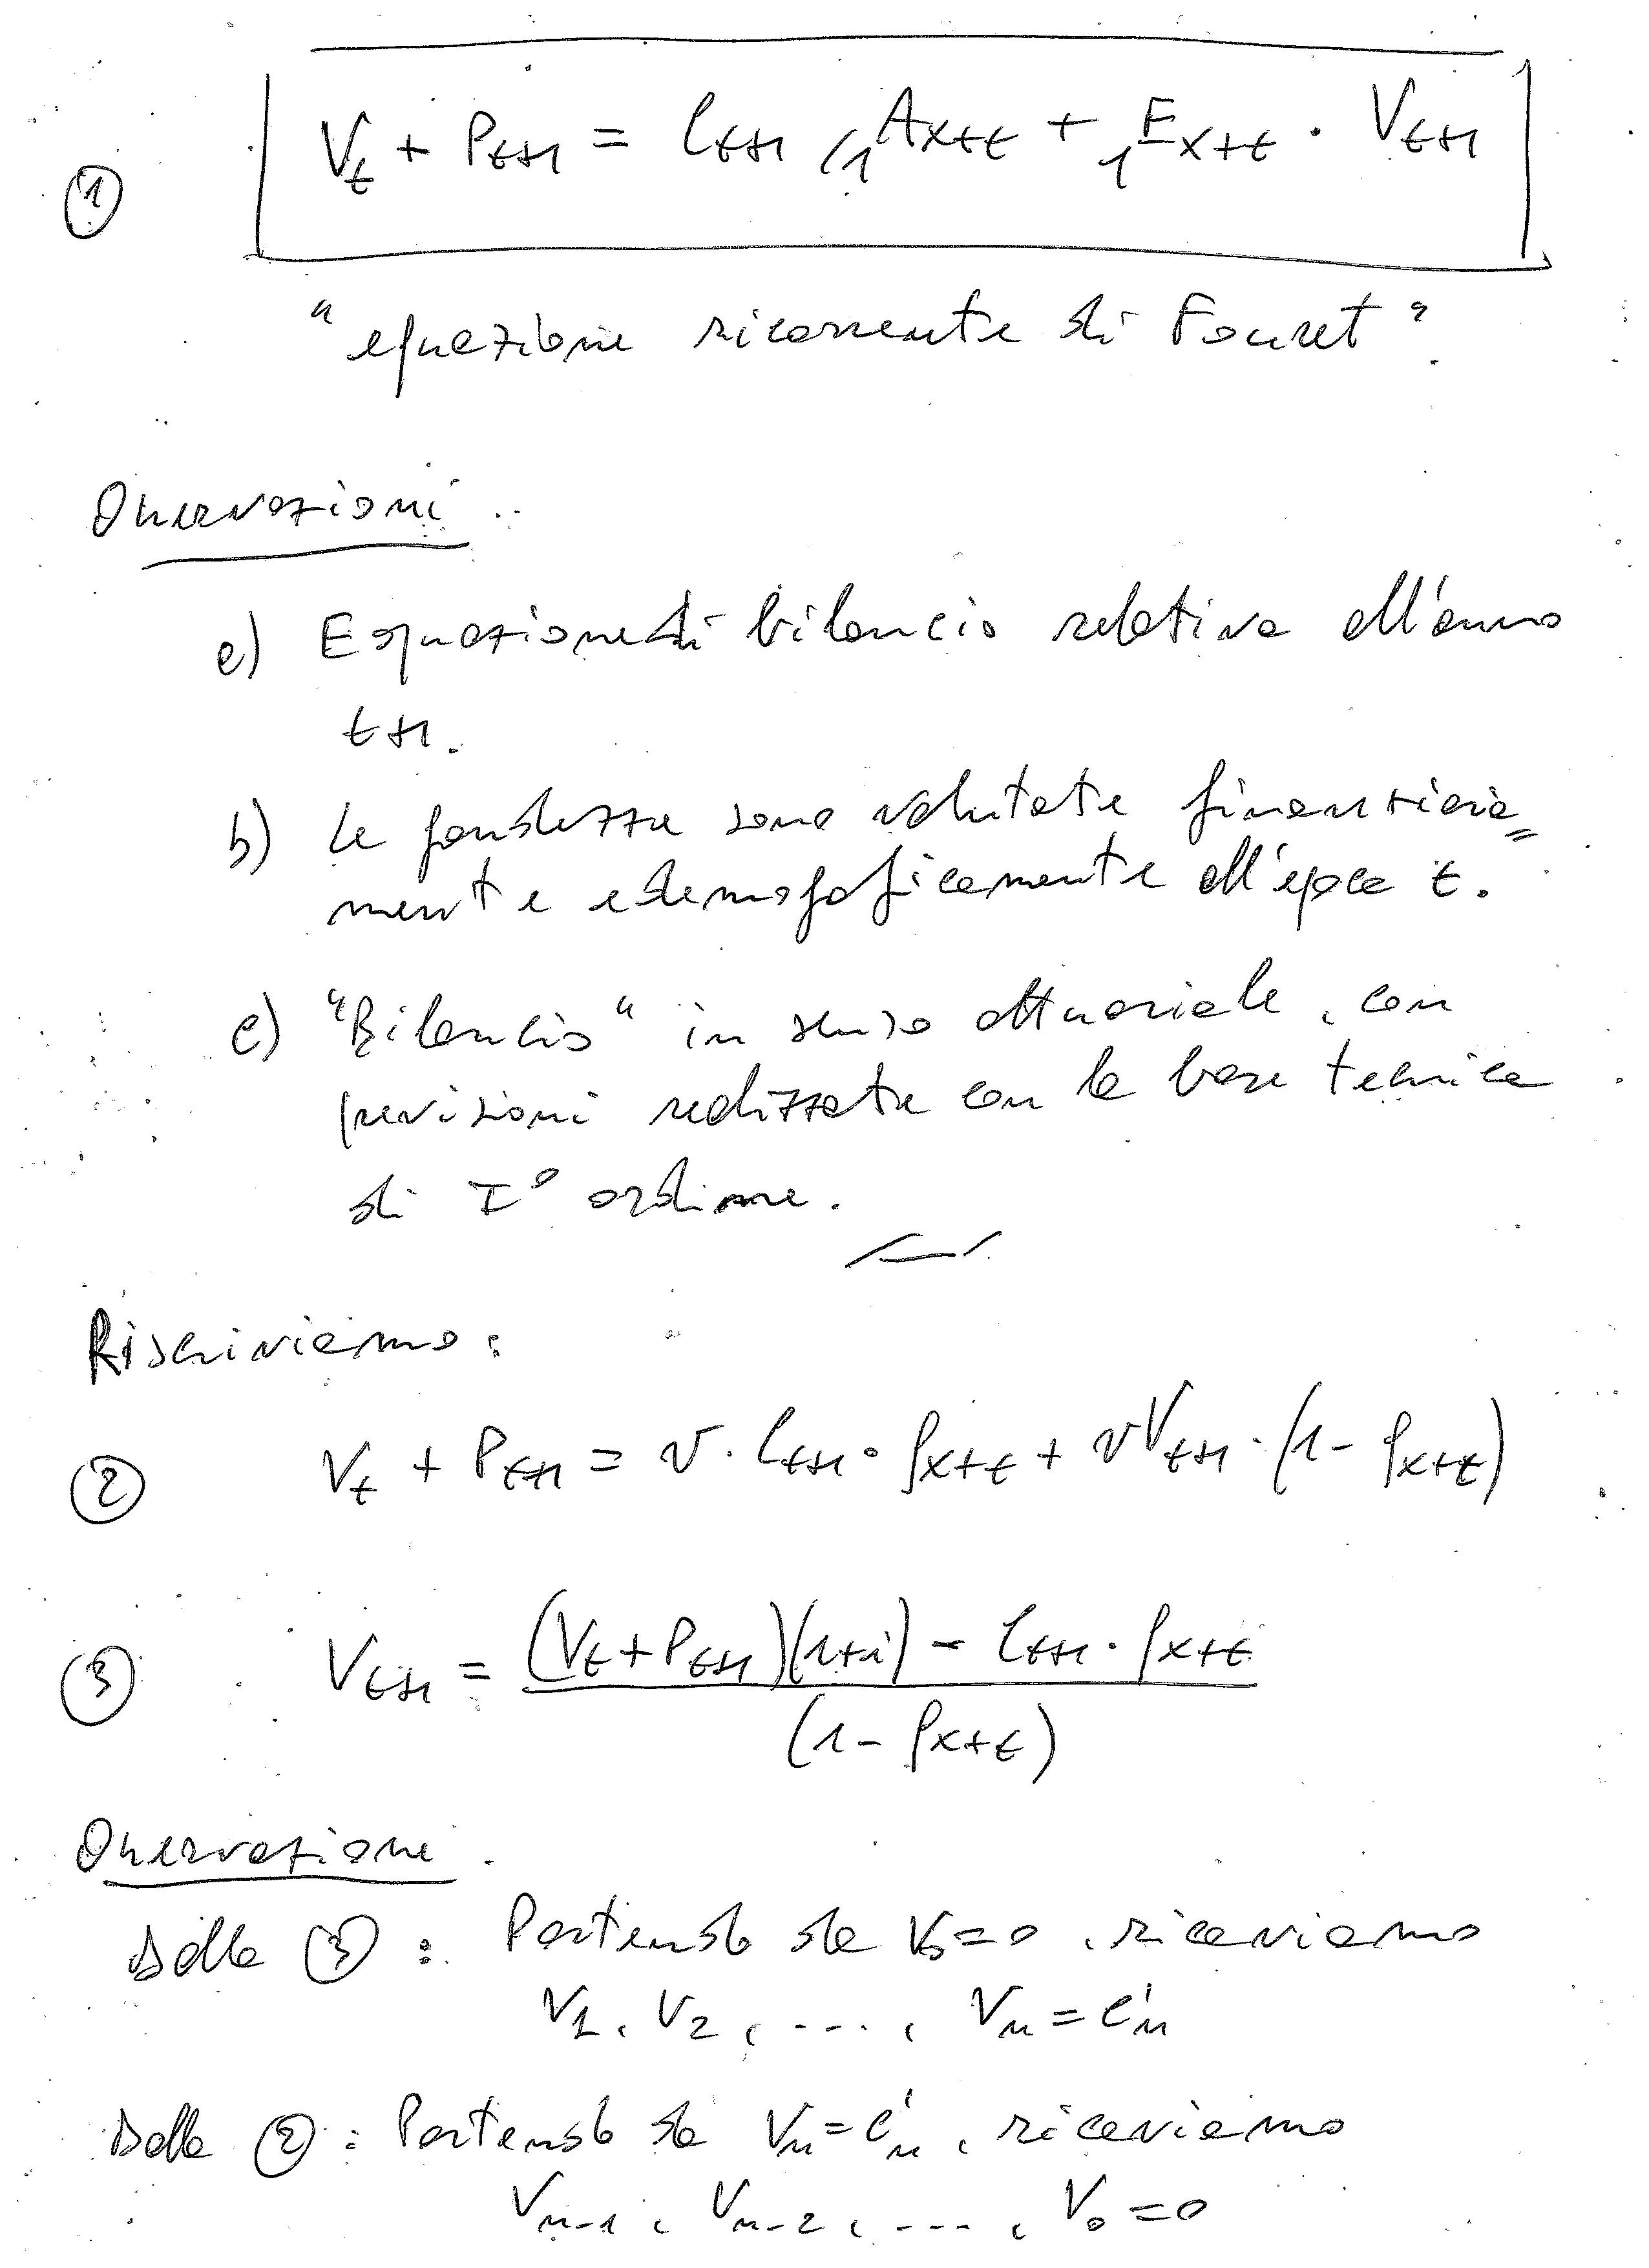 ① V_t + P_{t+1} = C_{t+1} /1A_{x+t} + 1E_{x+t} · V_{t+1}
"equazione ricorrente di Fouret".
Osservazioni.
a) Equazione di bilancio relativa all'anno
t+1.
b) Le grandezze sono valutate finanziaria=
mente e demograficamente all'epoca t.
c) "Bilancio" in senso attuariale, con
previsioni realizzate con la base tecnica
di I° ordine.
Riscriviamo:
② V_t + P_{t+1} = v · C_{t+1} · q_{x+t} + v V_{t+1} · (1 - q_{x+t})
③ V_{t+1} = (V_t + P_{t+1})(1+i) - C_{t+1} · q_{x+t}
(1 - q_{x+t})
Osservazione.
Dalla ③: Partendo da V_0=0, ricaviamo
V_1, V_2, ..., V_n = C'_n
Dalla ②: Partendo da V_n = C'_n, ricaviamo
V_{n-1}, V_{n-2}, ..., V_0 = 0